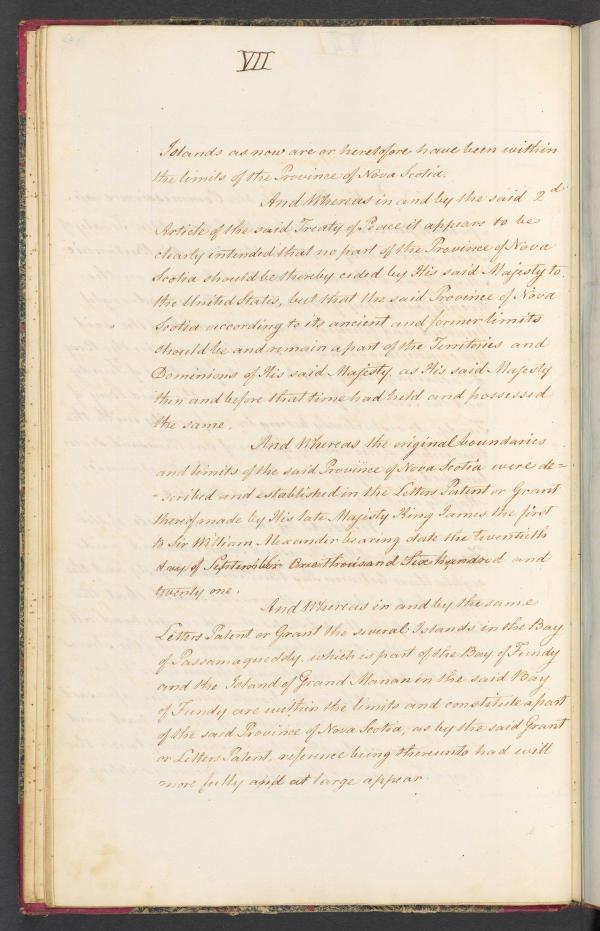 VII
Islands as now are or heretofore have been within
the limits of the Province of Nova Scotia.
And Whereas in and by the said 2d
Article of the said Treaty of Peace it appears to be
clearly intended that no part of the Province of Nova
Scotia should be thereby ceded by His said Majesty to
the United States, but that the said Province of Nova
Scotia according to its ancient and former limits
should be and remain a part of the Territories and
Dominions of His said Majesty, as His said Majesty
then and before that time had held and possessed
the same.
And Whereas the original boundaries
and limits of the said Province of Nova Scotia were de=
=scribed and established in the Letters Patent or Grant
thereof made by His late Majesty King James the first
to Sir William Alexander bearing date the twentieth
day of September One thousand Six hundred and
twenty one.
And Whereas in and by the same
Letters Patent or Grant the several Islands in the Bay
of Passamaqueddy, which is part of the Bay of Fundy
and the Island of Grand Manan in the said Bay
of Fundy are within the limits and constitute a part
of the said Province of Nova Scotia, as by the said Grant
or Letters Patent, reference being thereunto had will
more fully and at large appear.